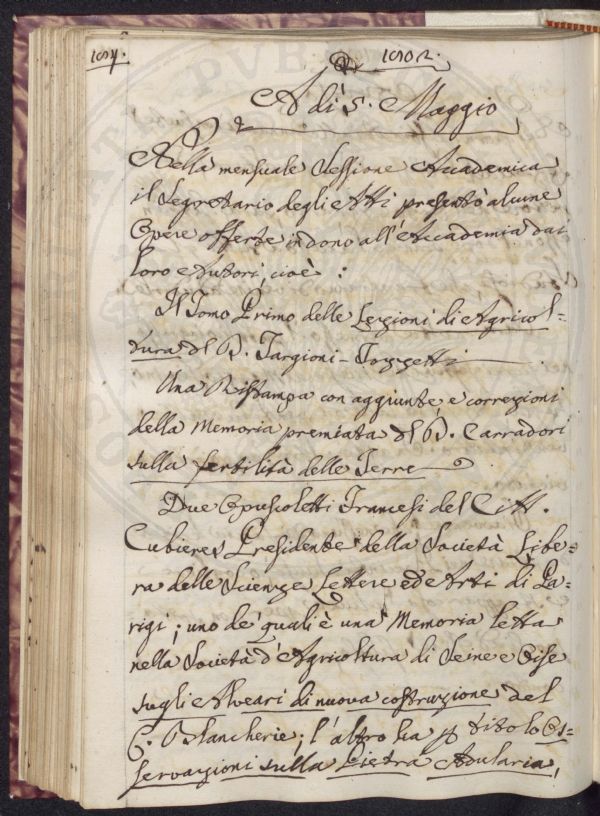 104.
1802.
A dì 5. Maggio
Nella mensuale Sessione Accademica
il Segretario degli Atti presentò alcune
Opere offerte in dono all'Accademia dai
loro Autori, cioè:
Il Tomo Primo delle Lezioni di Agricol=
tura del D. Targioni-Tozzetti
Una Ristampa con aggiunte, e correzioni
della Memoria premiata del D. Carradori
sulla fertilità delle Terre
Due Opuscoletti Francesi del Citt.
Cubieres Presidente della Società Libe=
ra delle Scienze Lettere ed Arti di Pa=
rigi; uno de' quali è una Memoria letta
nella Società d'Agricoltura di Seine e Oise
sugli Alveari di nuova costruzione del
C. Blancherie; l'altro ha p titolo Os=
servazioni sulla Pietra Adularia,